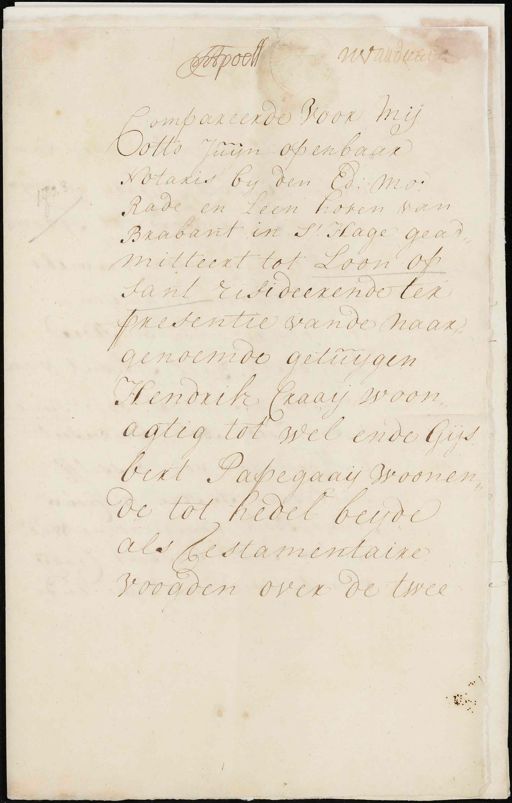 Compareerde Voor Mij
Otto Juijn openbaar
Notaris by den Ed: Mo:
Rade en Leen hoven van
Brabant in S' Hage gead„
mitteert tot Loon op
sant resideerende ter
presentie vande naar„
genoemde getuijgen
Hendrik Craaij woon„
agtig tot Wel ende Gijs
bert Papegaaij Woonen„
de tot hedel beijde
als Testamentaire
Voogden over de twee